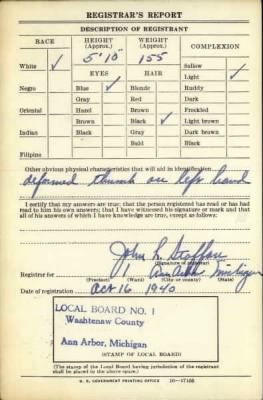 REGISTRAR'S REPORT
DESCRIPTION OF REGISTRANT
RACE HEIGHT (Approx.) WEIGHT (Approx.) COMPLEXION
5' 10" 155
White ✓ Sallow
EYES HAIR Light ✓
Negro Blue ✓ Blonde Ruddy
Gray Red Dark
Oriental Hazel Brown Freckled
Brown Black ✓ Light brown
Indian Black Gray Dark brown
Bald Black
Filipino
Other obvious physical characteristics that will aid in identification
deformed thumb on left hand
I certify that my answers are true; that the person registered has read or has had
read to him his own answers; that I have witnessed his signature or mark and that
all of his answers of which I have knowledge are true, except as follows:
John L. Steffan
(Signature of registrar)
Registrar for Ann Arbor Michigan
(Precinct) (Ward) (City or county) (State)
Date of registration Oct 16 1940
LOCAL BOARD NO. 1
Washtenaw County
Ann Arbor, Michigan
(STAMP OF LOCAL BOARD)
(The stamp of the Local Board having jurisdiction of the registrant
shall be placed in the above space.)
U. S. GOVERNMENT PRINTING OFFICE 16—17105